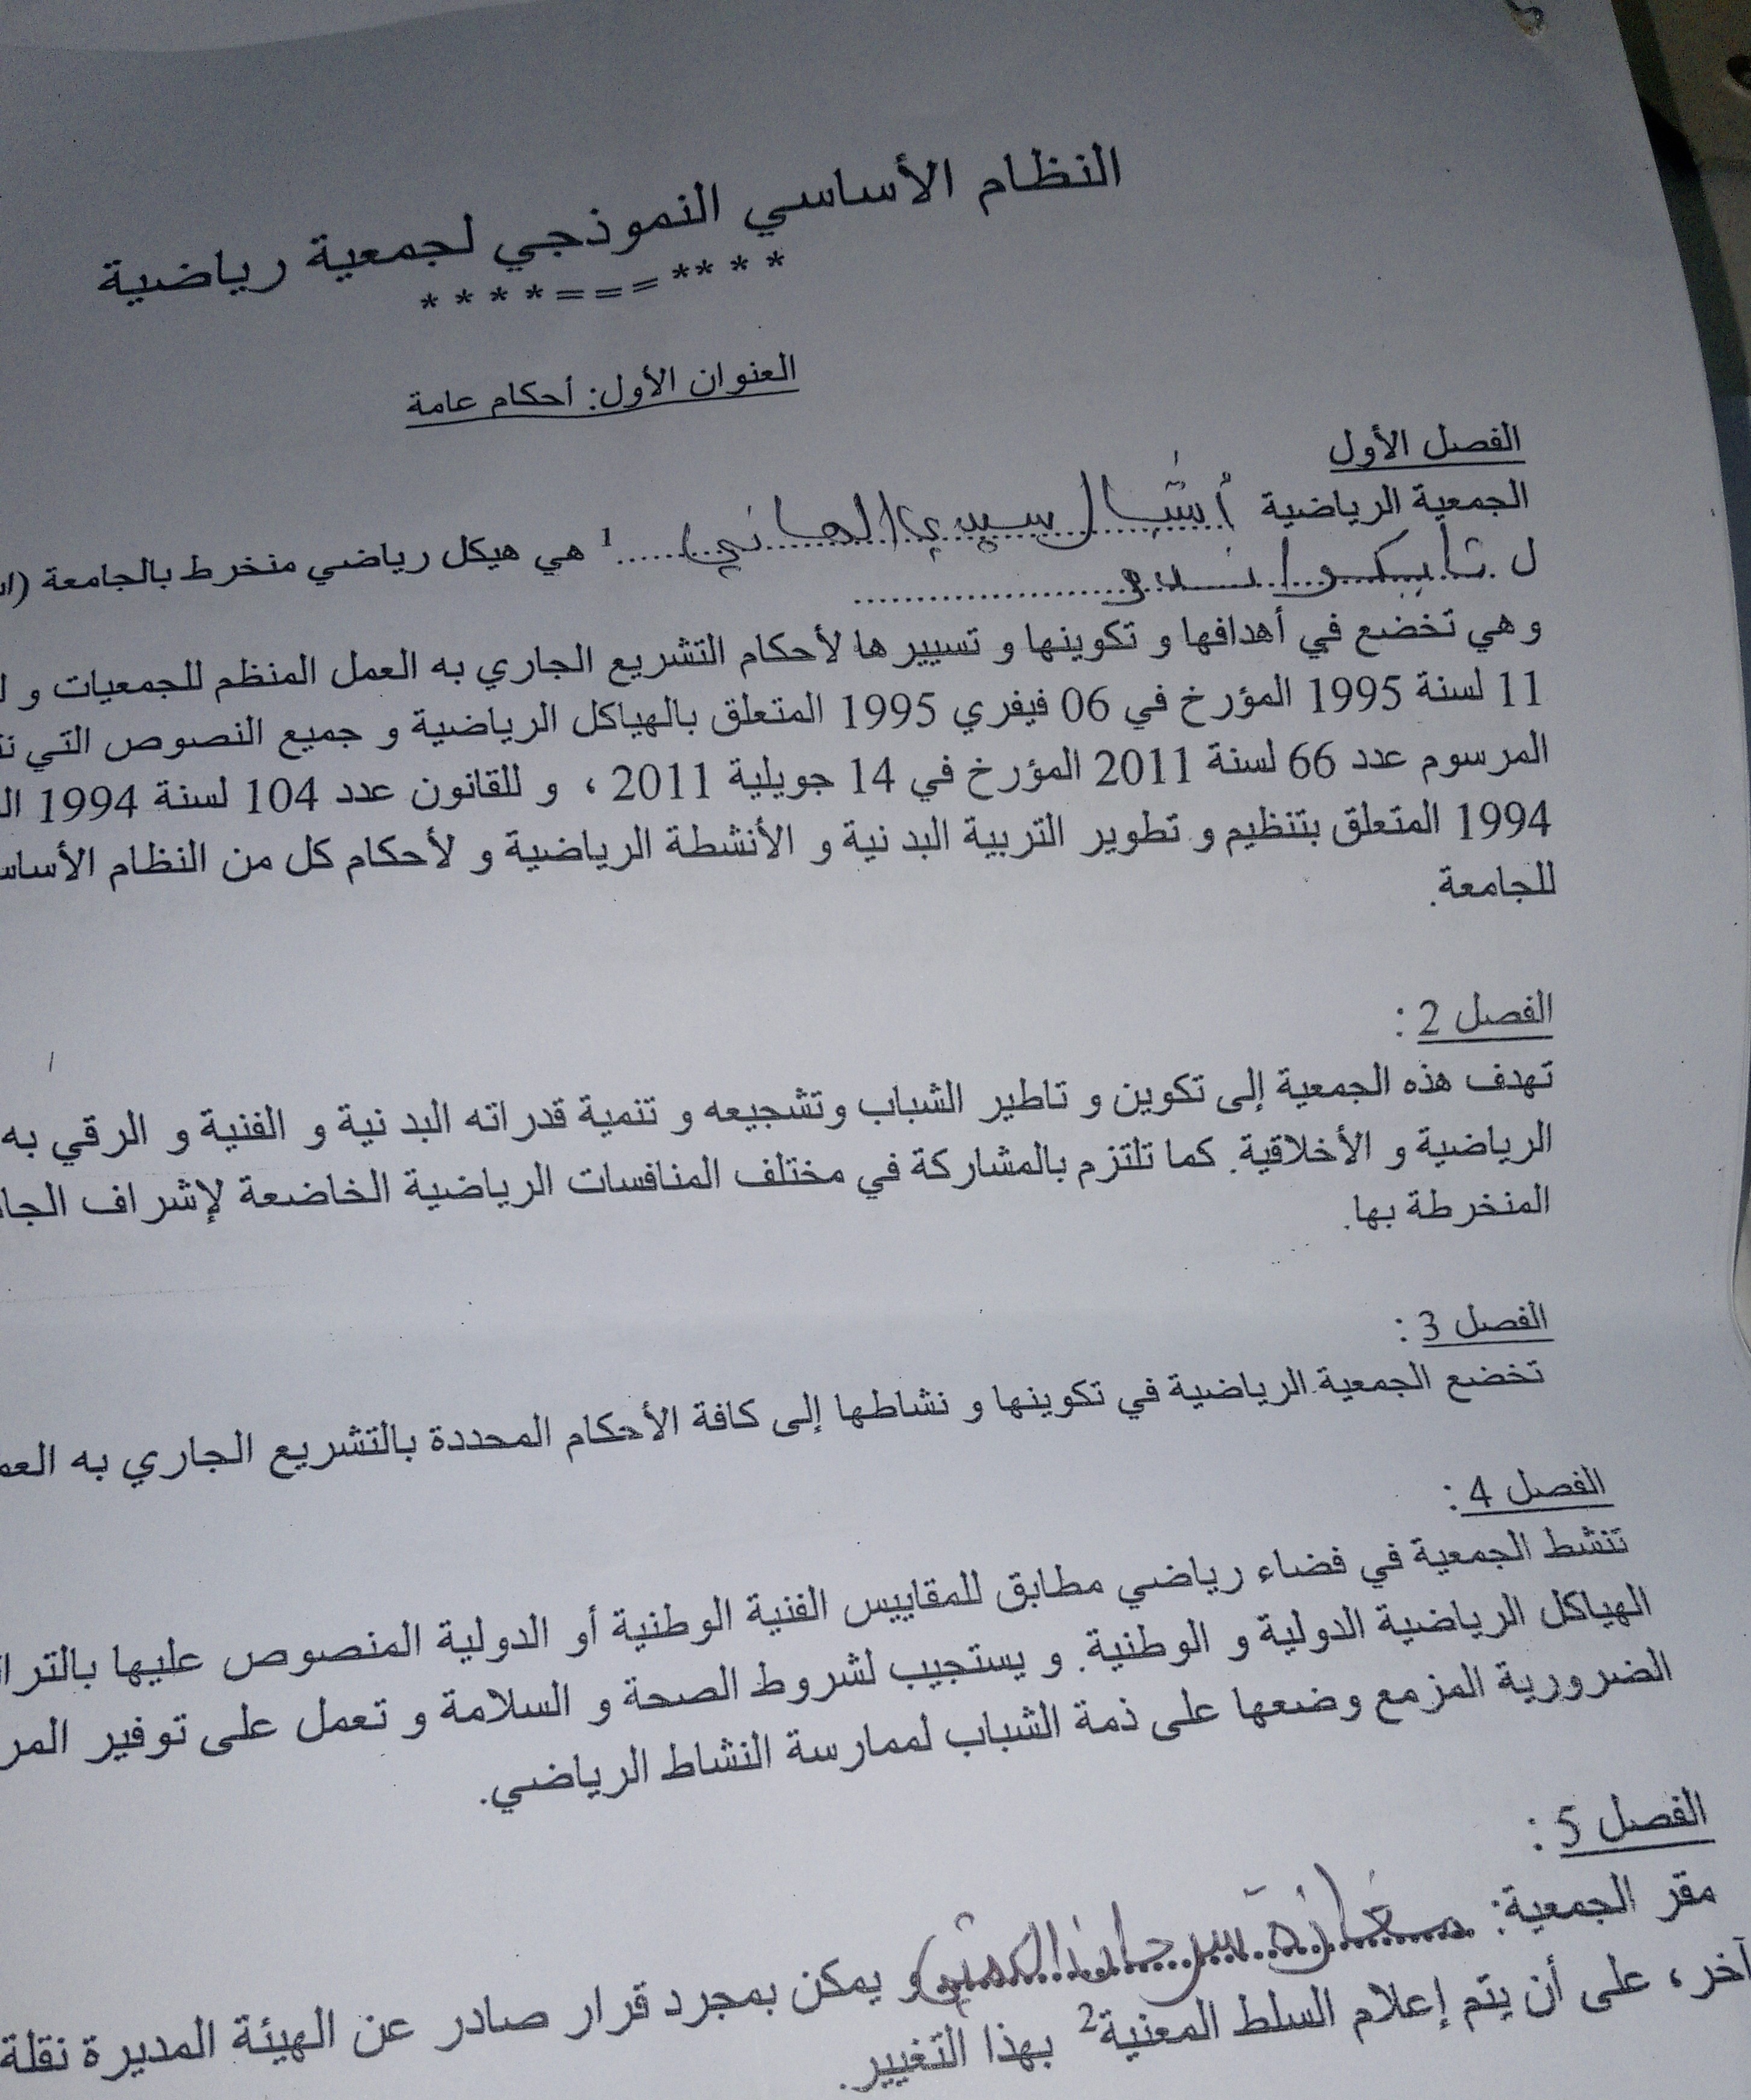 النظام الأساسي النموذجي لجمعية رياضية
* * * * = = = * * * *
العنوان الأول: أحكام عامة
الفصل الأول
الجمعية الرياضية أشبال سيدي الهاني .....1 هي هيكل رياضي منخرط بالجامعة
ل تايكواندو ....................
وهي تخضع في أهدافها و تكوينها و تسييرها لأحكام التشريع الجاري به العمل المنظم للجمعيات و
11 لسنة 1995 المؤرخ في 06 فيفري 1995 المتعلق بالهياكل الرياضية و جميع النصوص التي
المرسوم عدد 66 لسنة 2011 المؤرخ في 14 جويلية 2011 ، و للقانون عدد 104 لسنة 1994
1994 المتعلق بتنظيم و تطوير التربية البدنية و الأنشطة الرياضية و لأحكام كل من النظام
للجامعة.
الفصل 2 :
تهدف هذه الجمعية إلى تكوين و تاطير الشباب وتشجيعه و تنمية قدراته البدنية و الفنية و الرقي به
الرياضية و الأخلاقية. كما تلتزم بالمشاركة في مختلف المنافسات الرياضية الخاضعة لإشراف
المنخرطة بها.
الفصل 3 :
تخضع الجمعية الرياضية في تكوينها و نشاطها إلى كافة الأحكام المحددة بالتشريع الجاري به
الفصل 4 :
تنشط الجمعية في فضاء رياضي مطابق للمقاييس الفنية الوطنية أو الدولية المنصوص عليها
الهياكل الرياضية الدولية و الوطنية. و يستجيب لشروط الصحة و السلامة و تعمل على توفير
الضرورية المزمع وضعها على ذمة الشباب لممارسة النشاط الرياضي.
الفصل 5 :
مقر الجمعية: مغازة سرحان و يمكن بمجرد قرار صادر عن الهيئة المديرة نقلة
آخر، على أن يتم إعلام السلط المعنية2 بهذا التغيير.